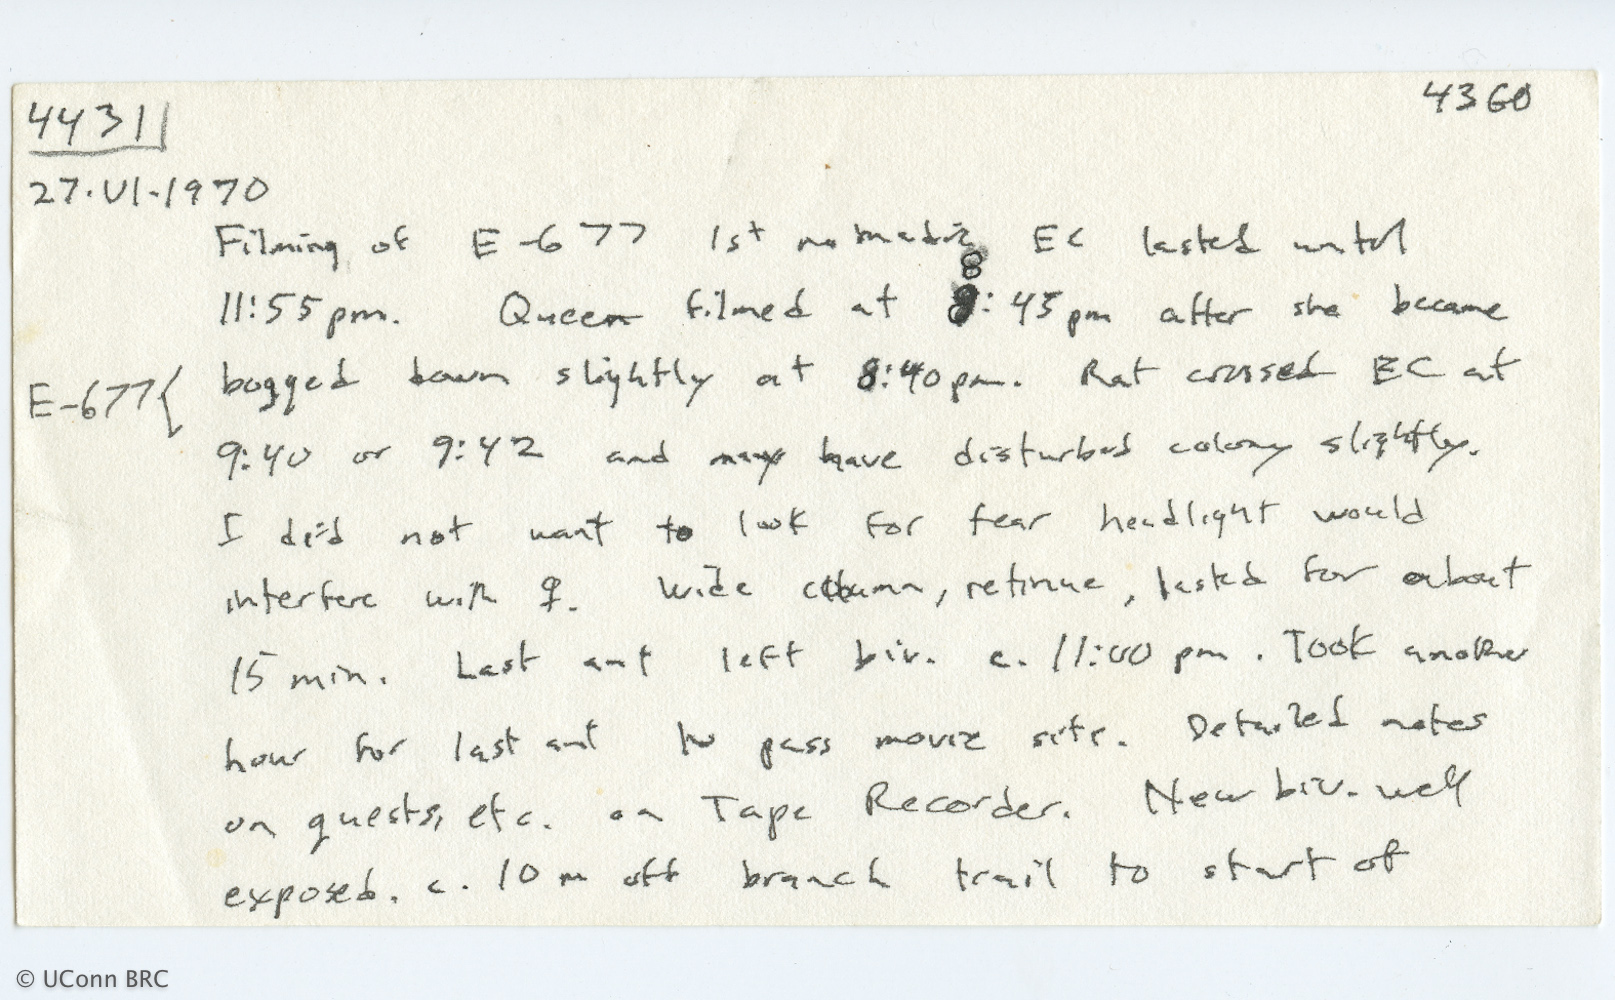 4431
4360
27·VI·1970
Filming of E-677 1st nomadic EC lasted until
8
11:55 pm. Queen filmed at 8:45 pm after she became
E-677{ bogged down slightly at 8:40 pm. Rat crossed EC at
9:40 or 9:42 and may have disturbed colony slightly.
I did not want to look for fear headlight would
interfere with ♀. Wide column, retinue, lasted for about
15 min. Last ant left biv. c. 11:00 pm. Took another
hour for last ant to pass movie site. Detailed notes
on guests, etc. on Tape Recorder. New biv. well
exposed. c. 10 m off branch trail to start of
© UConn BRC